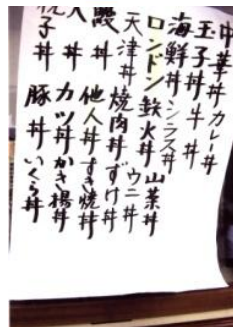 中華丼 カレー丼
玉子丼 牛丼
海鮮丼 シラス丼
ロンドン 鉄火丼 山菜丼
天津丼 焼肉丼 ずけ丼 ウニ丼
鰻丼 他人丼 すき焼丼
丼 カツ丼 かき揚丼
子丼 豚丼 いくら丼